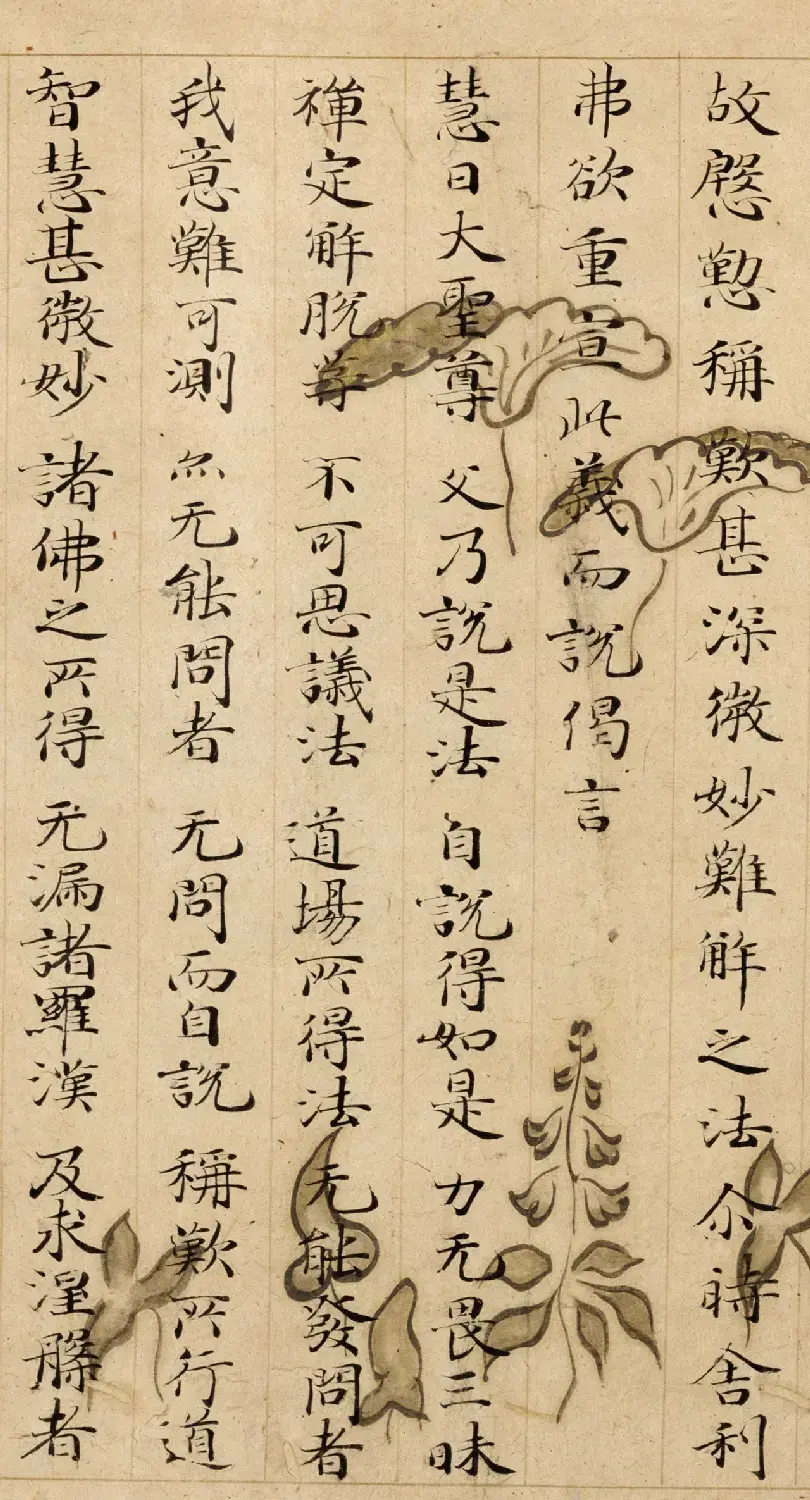 故慇懃稱歎甚深微妙難解之法尒時舍利
弗欲重宣此義而說偈言
慧日大聖尊 父乃說是法 自說得如是 力无畏三昧
禪定解脫尊 不可思議法 道場所得法 无能發問者
我意難可測 亦无能問者 无問而自說 稱歎所行道
智慧甚微妙 諸佛之所得 无漏諸羅漢 及求涅槃者